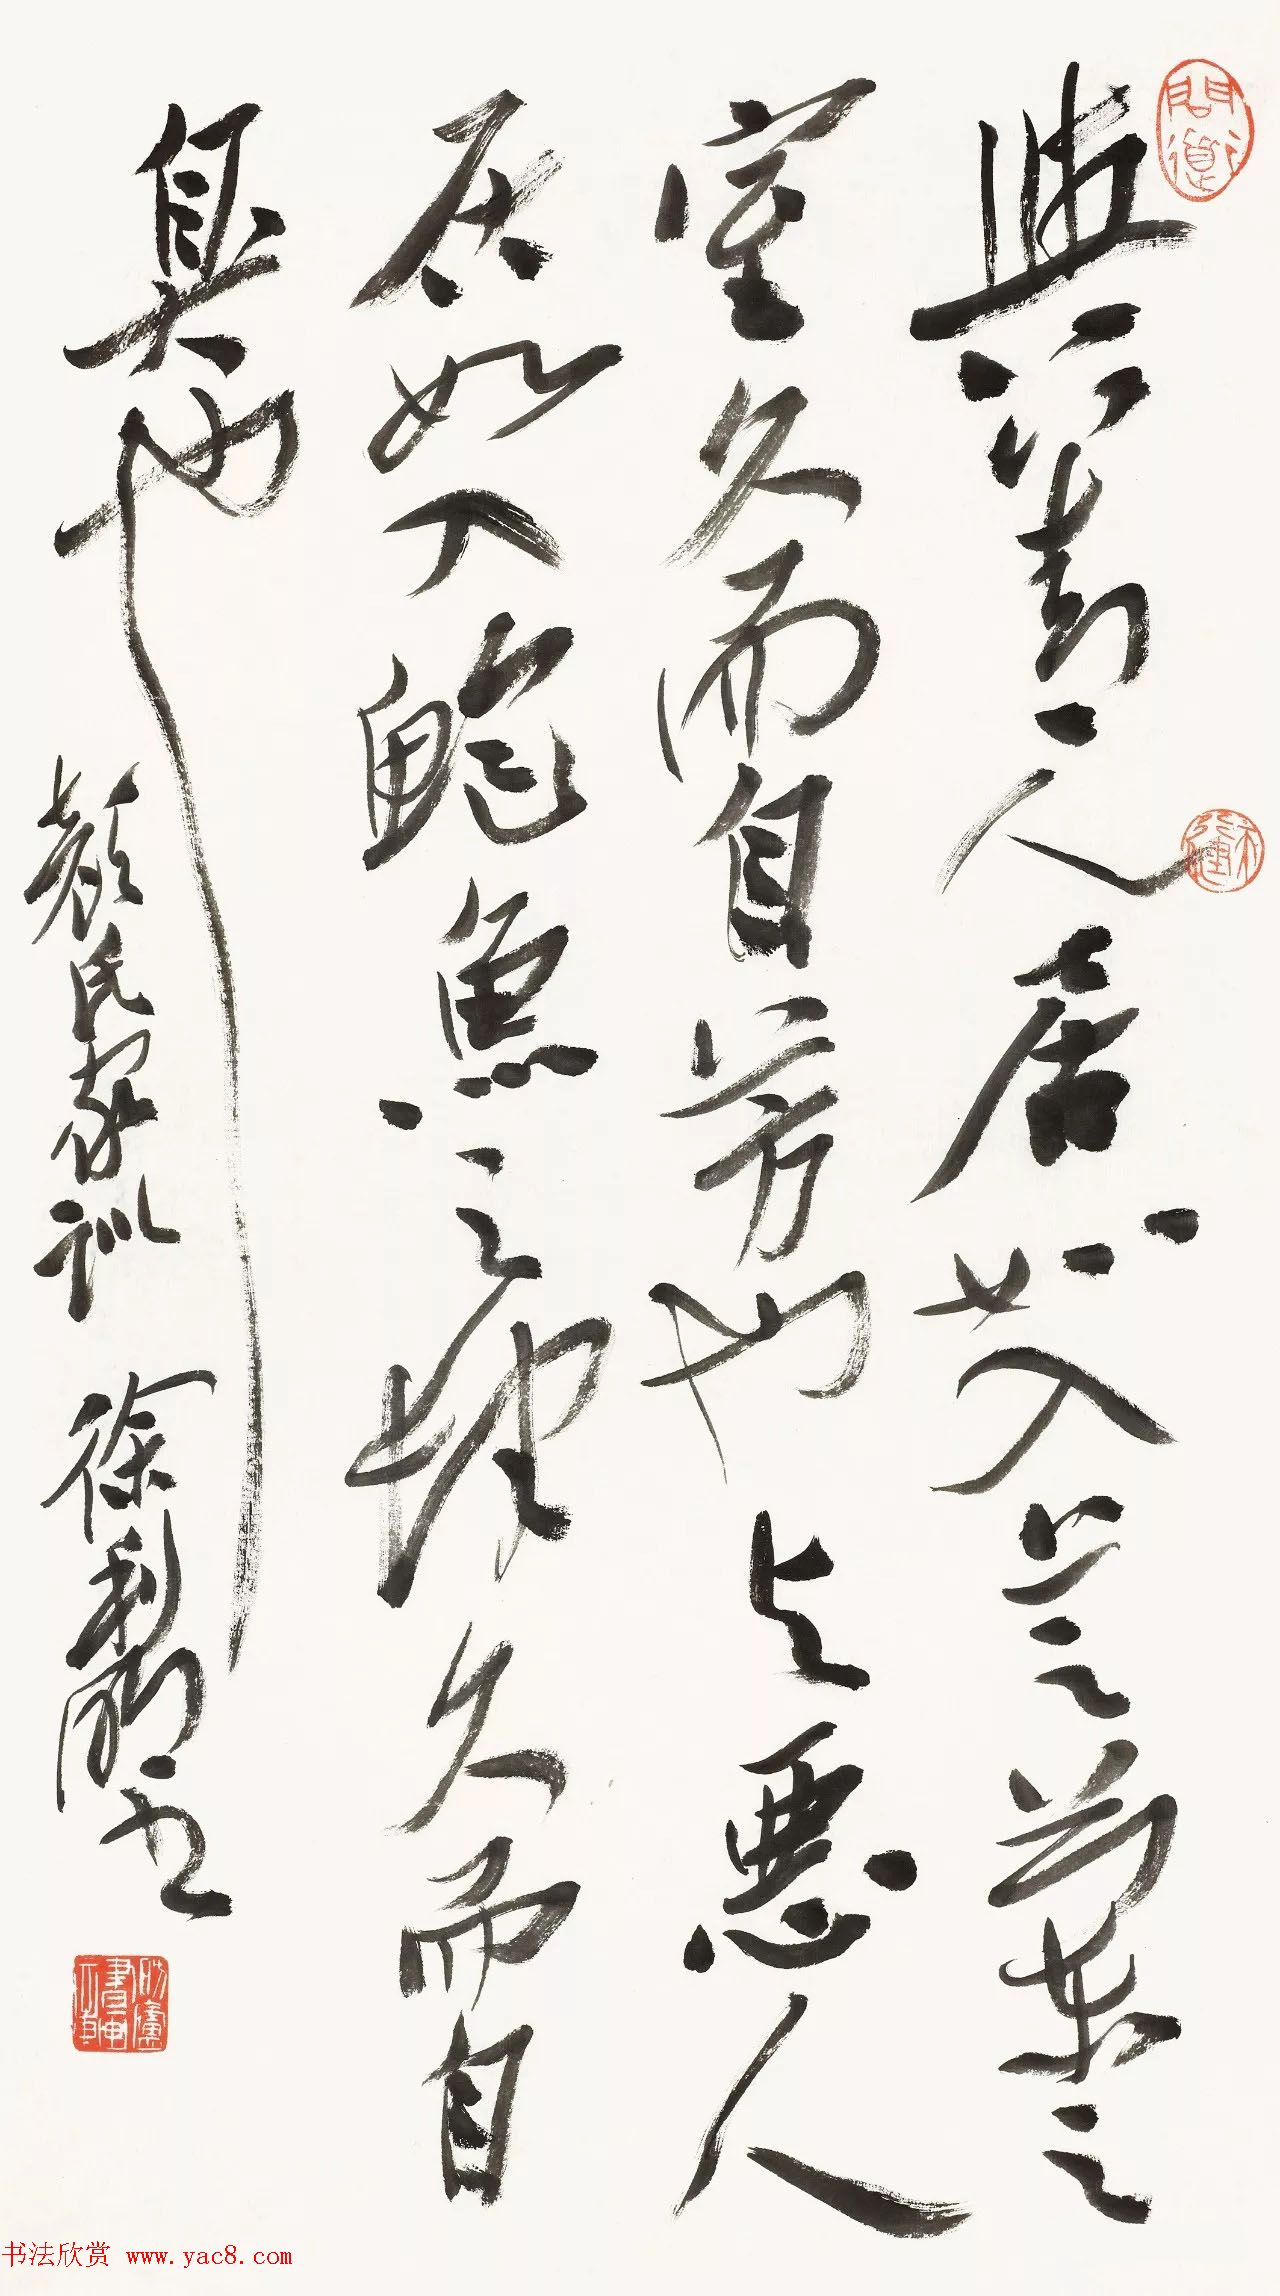 與善人居如入芝蘭之
室久而自芳也与惡人
居如入鲍魚之肆久而自
臭也
顏氏家訓 徐利明书
問道
書法欣赏 www.yac8.com